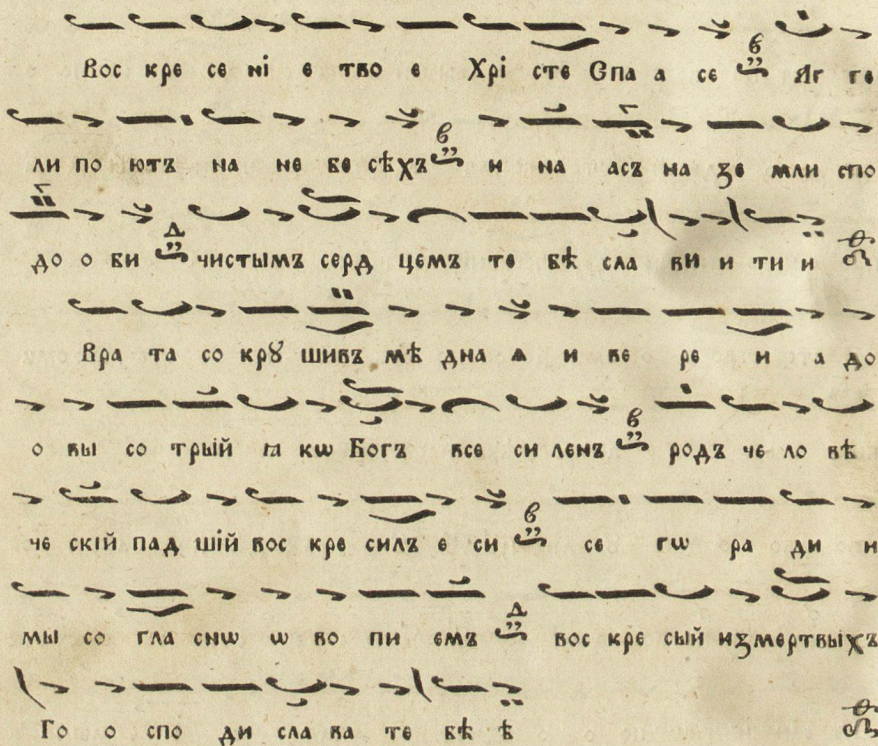 Вос кре се ні е тво е Хрі сте Спа а се Яг ге
ли по ютъ на не бе сѣхъ и на асъ на зе мли спо
до о би чистымъ серд цемъ те бѣ сла ви и ти и
Вра та со крꙋ шивъ мѣ дна ѧ и ве ре и а до
о вы со трый ꙗ кѡ Богъ все си ленъ родъ че ло вѣ
че скій пад шій вос кре силъ е си се гѡ ра ди и
мы со гла снѡ ѡ во пи емъ вос кре сый измертвыхъ
Го о спо ди сла ва те бѣ ѣ